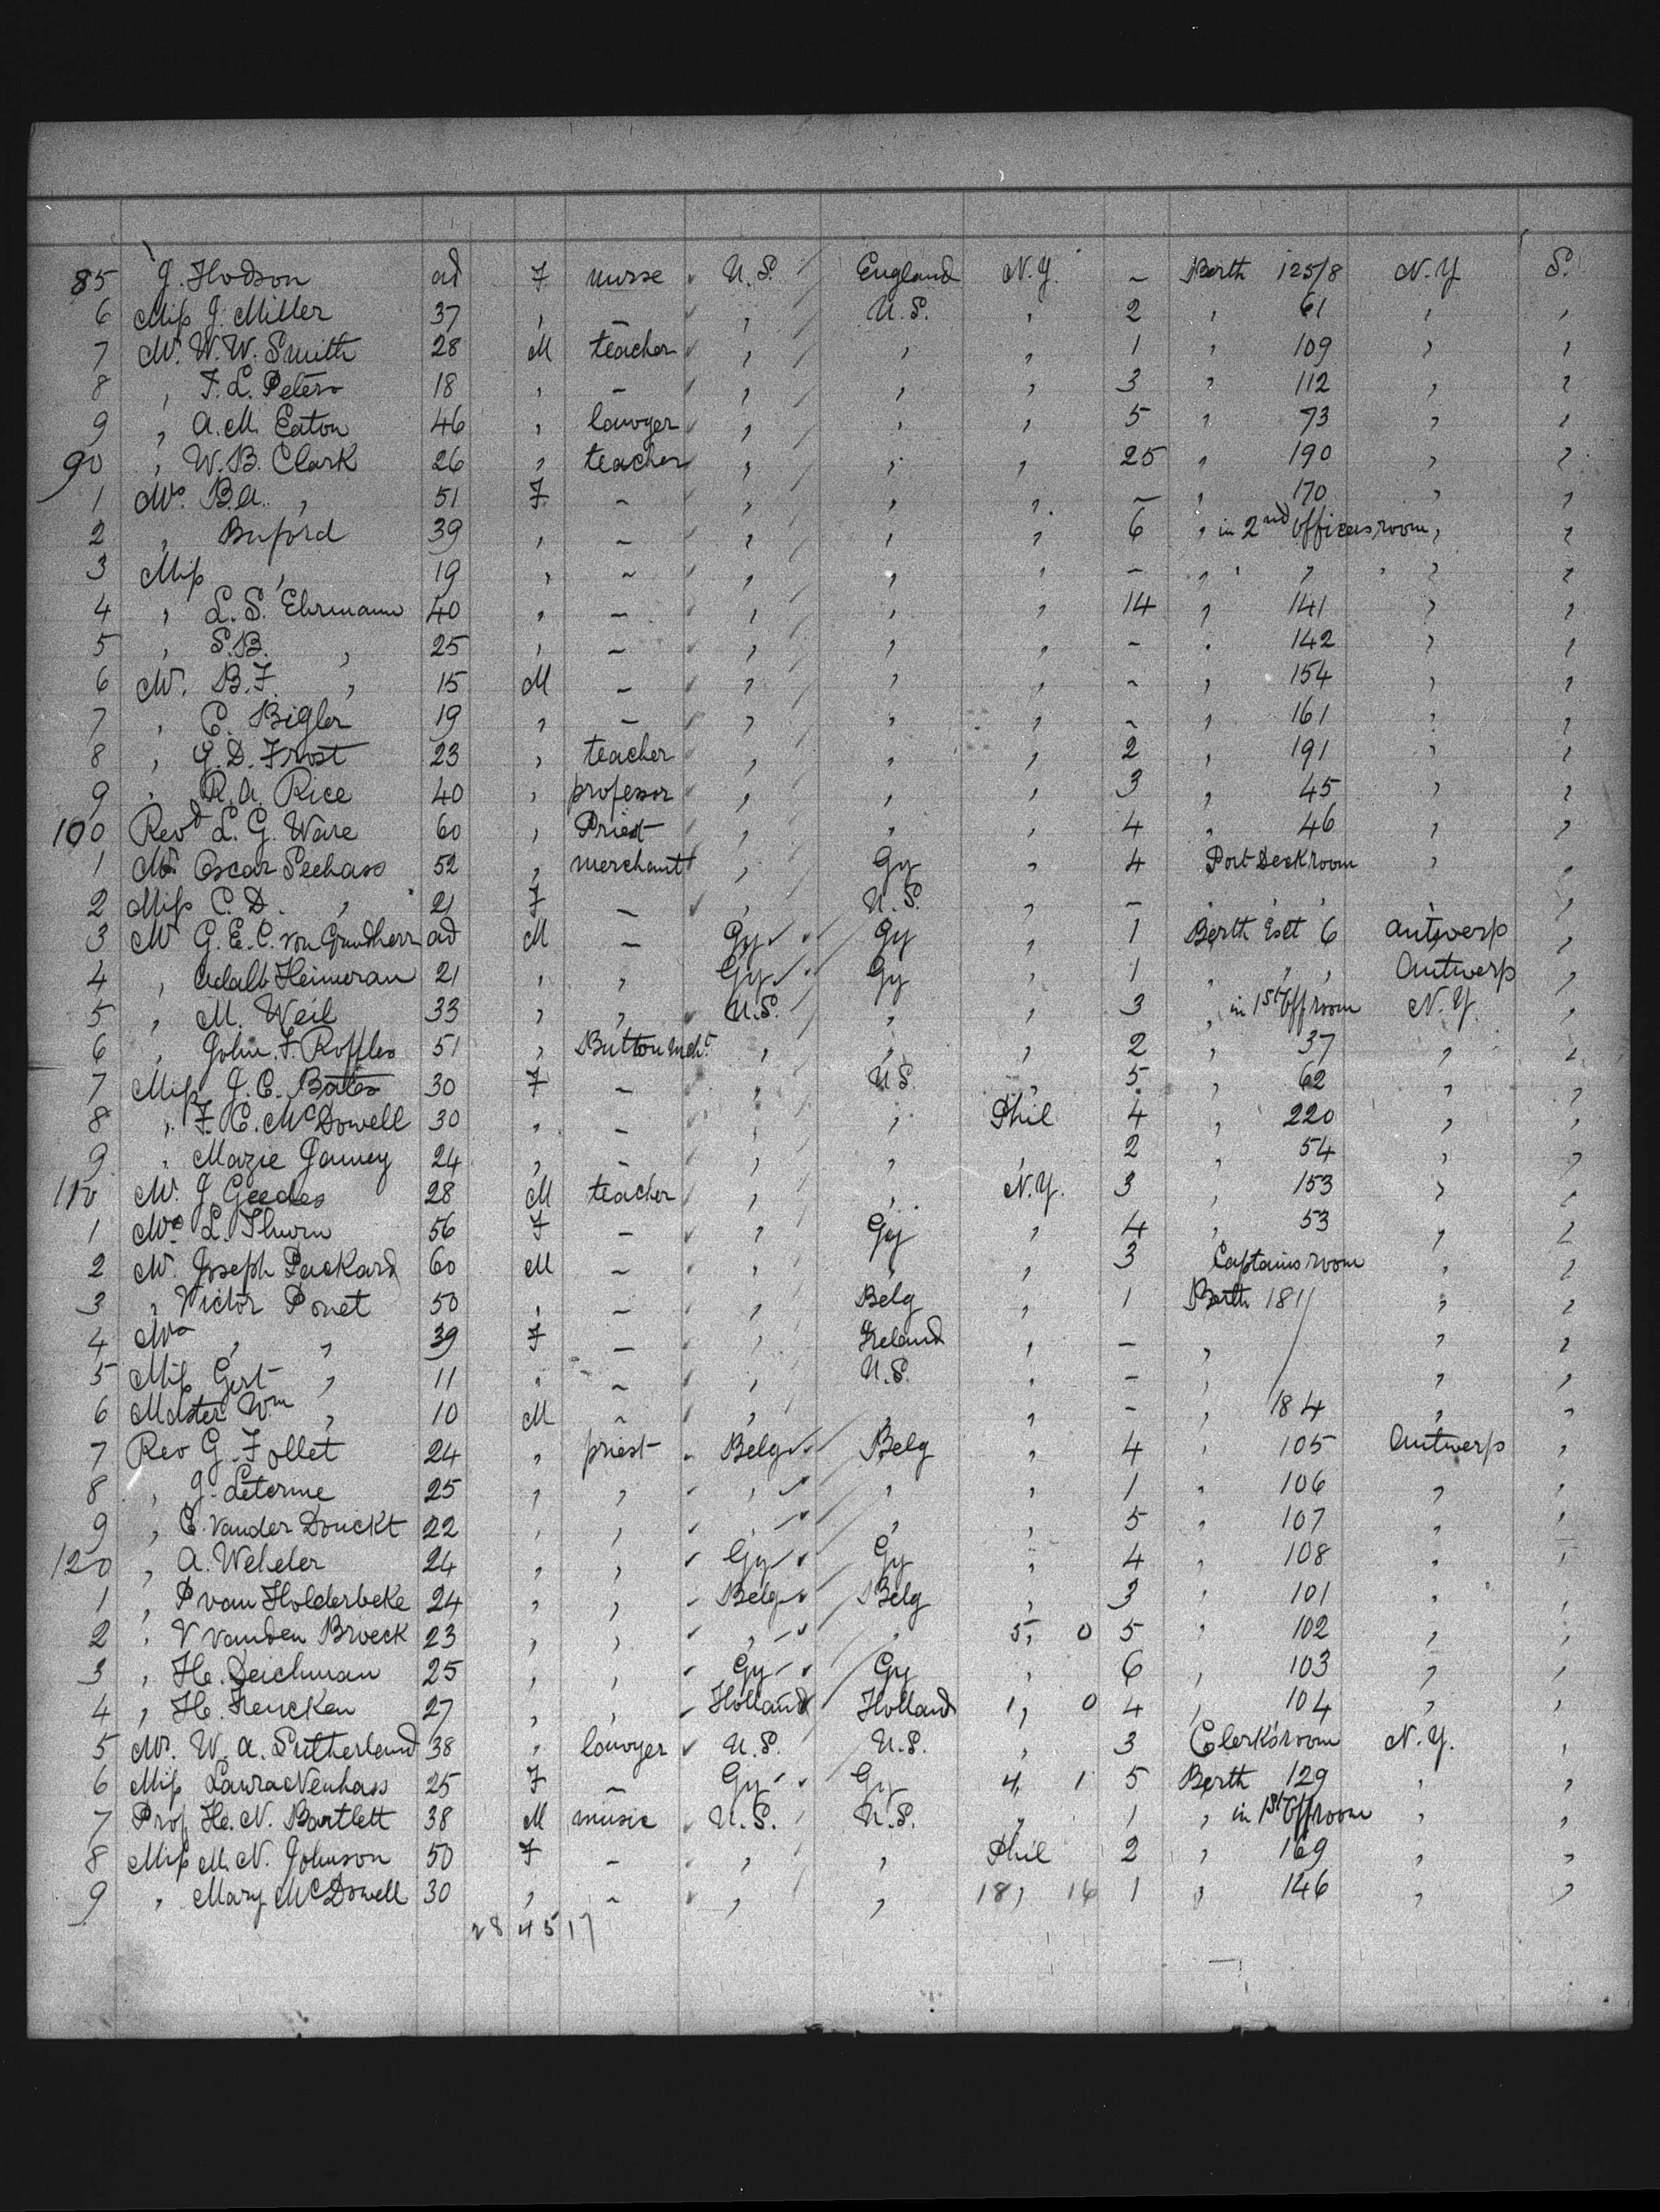 85 J. Hodson ad F nurse U.S. England N.Y. ~ Berth 125/8 N.Y S.
6 Miss J. Miller 37 , – , U.S. , 2 , 61 , ,
7 Mr. W.W. Smith 28 M teacher , , , 1 , 109 , ,
8 , F.L. Peters 18 , – , , , 3 , 112 , ,
9 , A.M. Eaton 46 , lawyer , , , 5 , 73 , ,
90 , W.B. Clark 26 , teacher , , , 25 , 190 , ,
1 Mrs. B.A. , 51 F – , , , ~ , 170 , ,
2 , Buford 39 , – , , , 6 , in 2nd Officers room , ,
3 Miss , 19 , ~ , , , – , , , , ,
4 , L.S. Ehrmann 40 , – , , , 14 , 141 , ,
5 , S.B. , 25 , – , , , – , 142 , ,
6 Mr. B.F. , 15 M – , , , ~ , 154 , ,
7 , C. Bigler 19 , – , , , ~ , 161 , ,
8 , G.D. Frost 23 , teacher , , , 2 , 191 , ,
9 , R.A. Rice 40 , professor , , , 3 , 45 , ,
100 Revd L.G. Ware 60 , Priest , , , 4 , 46 , ,
1 Mr. Oscar Seehass 52 , merchant , Gy , 4 Port Deck room , ,
2 Miss C.D. , 21 F – , U.S. , – , , , ,
3 Mr G.E.C. von Grundherr ad M – Gy Gy , 1 Berth Eslt 6 Antwerp ,
4 , Adalb Heimeran 21 , , Gy Gy , 1 , , , Antwerp ,
5 , M. Weil 33 , , U.S. , , 3 , in 1st Off room N.Y. ,
6 , John. F. Roffles 51 , Button mcht , , , 2 , 37 , ,
7 Miss J.C. Bates 30 F – , U.S. , 5 , 62 , ,
8 , F.C. McDowell 30 , – , , Phil 4 , 220 , ,
9 , Mazie 24 , – , , , 2 , 54 , ,
110 Mr. J Geedes 28 M teacher , , N.Y. 3 , 153 , ,
1 Mrs L. Thurn 56 F – , Gy , 4 , 53 , ,
2 Mr. Joseph Packard 60 M – , , , 3 Captains room , ,
3 , Victor Ponet 50 , – , Belg , 1 Berth 181 , ,
4 Mrs , , 39 F – , Ireland , – , , ,
5 Miss Gert , 11 , ~ , U.S. , – , , ,
6 Master Wm , 10 M ~ , , , – , 184 , ,
7 Rev G. Follet 24 , priest Belg Belg , 4 , 105 Antwerp ,
8 , J. Leterme 25 , , , , , 1 , 106 , ,
9 , C. Vander Donckt 22 , , , , , 5 , 107 , ,
120 , A. Weheler 24 , , Gy Gy , 4 , 108 , ,
1 , P van Holderbeke 24 , , Belg Belg , 3 , 101 , ,
2 , V vanden Broeck 23 , , , , 5, 0 5 , 102 , ,
3 , He. Deichman 25 , , Gy Gy , 6 , 103 , ,
4 , H. Frencken 27 , , Holland Holland 1, 0 4 , 104 , ,
5 Mr. W.A. Sutherland 38 , lawyer U.S. U.S. , 3 Clerk's room N.Y. ,
6 Miss Laura Neuhass 25 F – Gy Gy 4, 1 5 Berth 129 , ,
7 Prof. He. N. Bartlett 38 M music U.S. U.S. , 1 , in 1st Off room , ,
8 Miss M.N. Johnson 50 F – , , Phil 2 , 169 , ,
9 , Mary McDowell 30 , ~ , , 18, 16 1 , 146 , ,
28 45 17